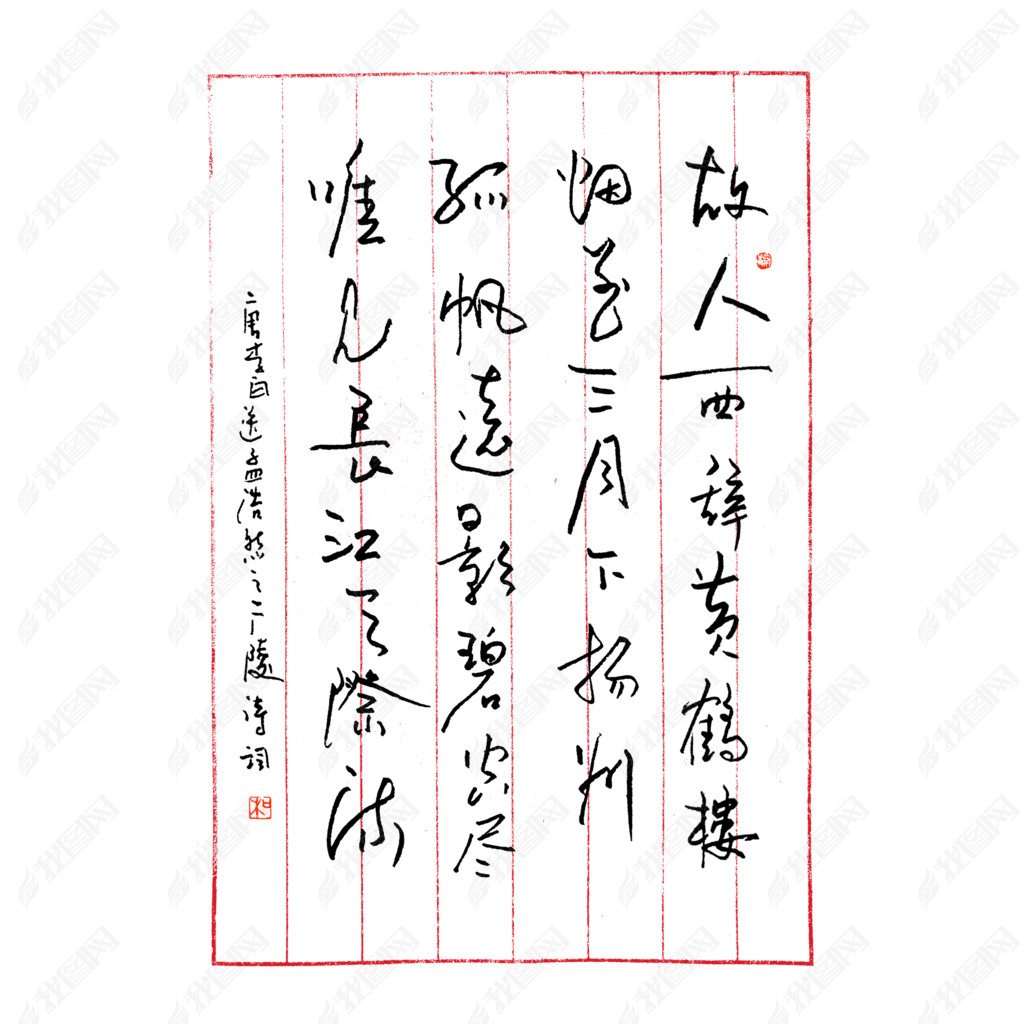 故人西辞黄鹤楼
烟花三月下扬州
孤帆遠影碧空尽
唯见長江天際流
唐李白送孟浩然之广陵诗词
我图网